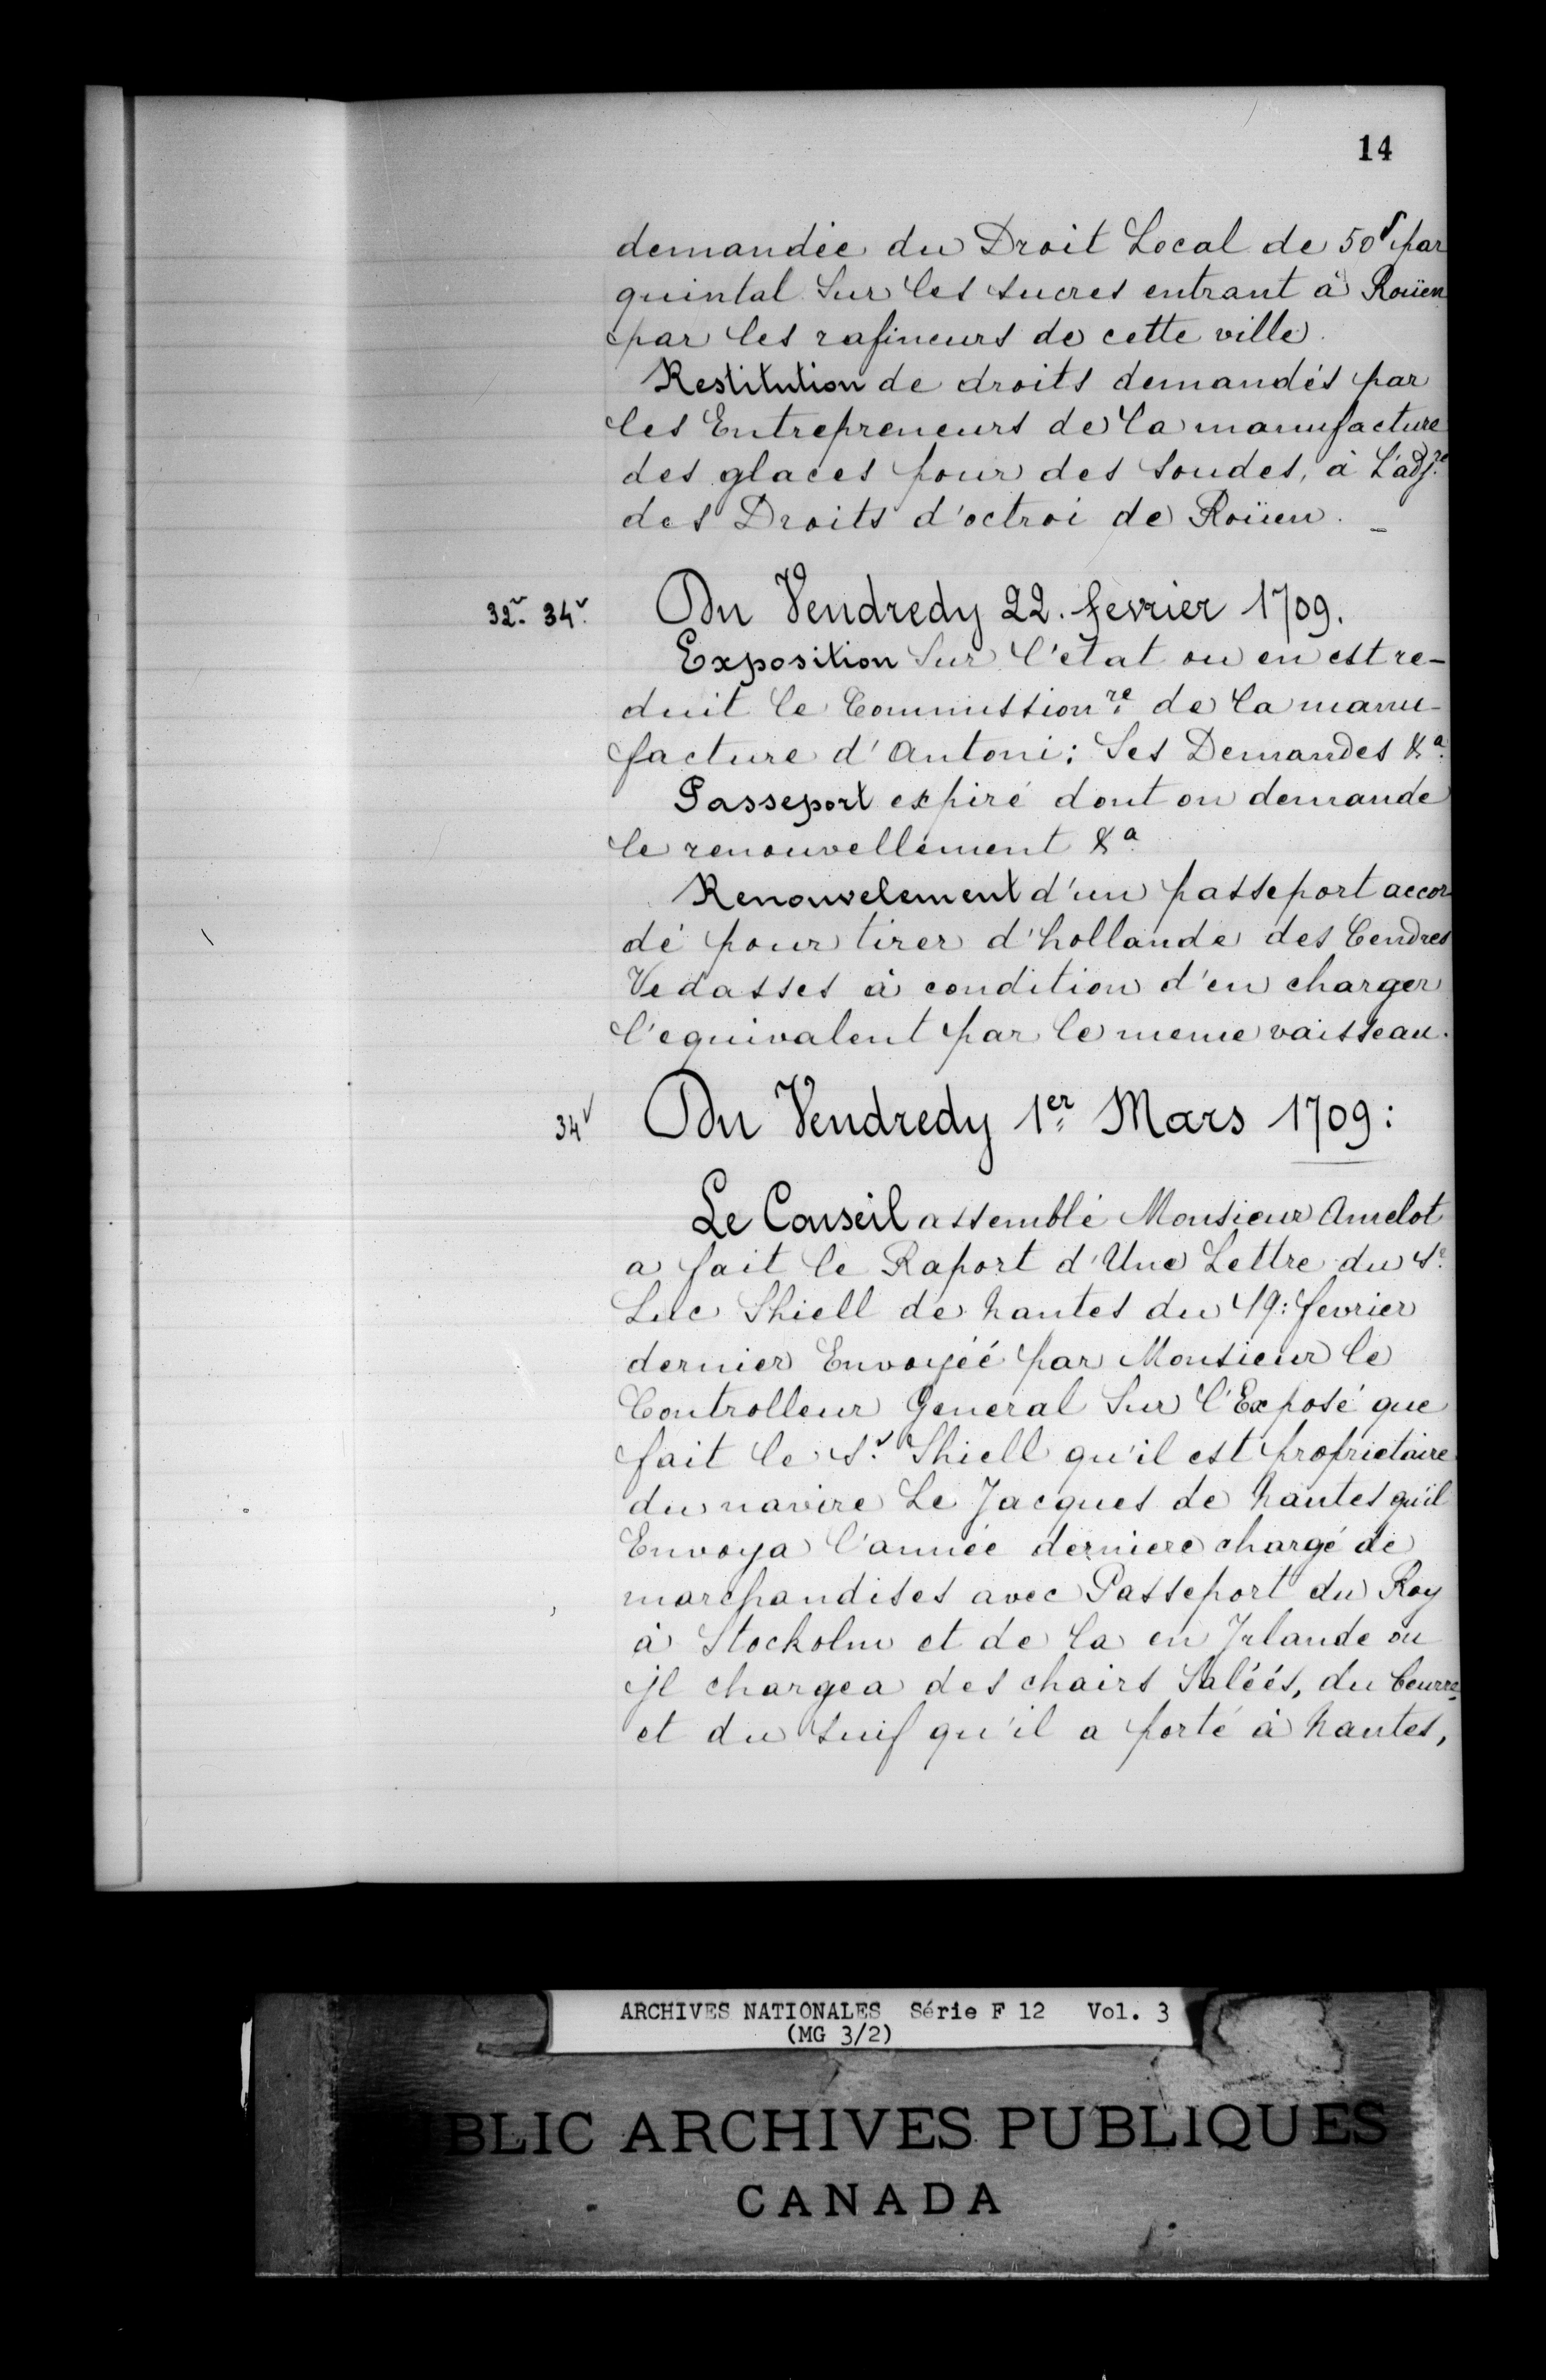 14
demandée du Droit Local de 50ˢ par
quintal Sur les sucres entrant à Roüen
par les rafineurs de cette ville.
Restitution de droits demandés par
les Entrepreneurs de la manufacture
des glaces pour des soudes, à L'adj.re
des Droits d'octroi de Roüen. _
32v. 34v. Du Vendredy 22. fevrier 1709.
Exposition Sur l'état ou en est re-
duit le Commission.re de la manu-
facture d'Antoni: Ses Demandes &a.
Passeport expiré dont on demande
le renouvellement &a.
Renouvelement d'un passeport accor
dé pour tirer d'hollande des Cendres
Vedasses à condition d'en charger
l'equivalent par le meme vaisseau.
34v Du Vendredy 1er. Mars 1709:
Le Conseil assemblé Monsieur Amelot
a fait le Raport d'Une Lettre du Sr.
Luc Shiell de hantes du 19: fevrier
dernier Envoyéé par Monsieur le
Controlleur General Sur l'Exposé que
fait le Sr. Shiell qu'il est proprietaire
du navire Le Jacques de hantes qu'il
Envoya l'année derniere chargé de
marchandises avec Passeport du Roy
à Stockolm et de la en Jrlande ou
jl chargea des chairs Saléés, du beurre
et du suif qu'il a porté à hantes,
ARCHIVES NATIONALES Série F 12 Vol. 3
(MG 3/2)
BLIC ARCHIVES PUBLIQUES
CANADA